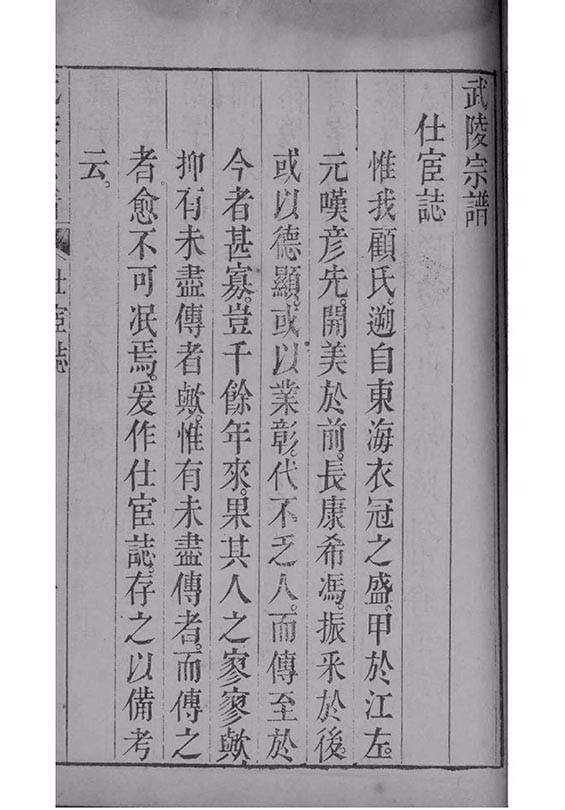 武陵宗譜
仕宦誌
惟我顧氏。遡自東海衣冠之盛。甲於江左
元嘆彦先。開美於前。長康希馮。振釆於後。
或以德顯。或以業彰。代不乏人。而傳至於
今者甚寡。豈千餘年來。果其人之寥寥歟
抑有未盡傳者歟。惟有未盡傳者。而傳之
者愈不可泯焉。爰作仕宦誌。存之以備考
云。
仕宦誌